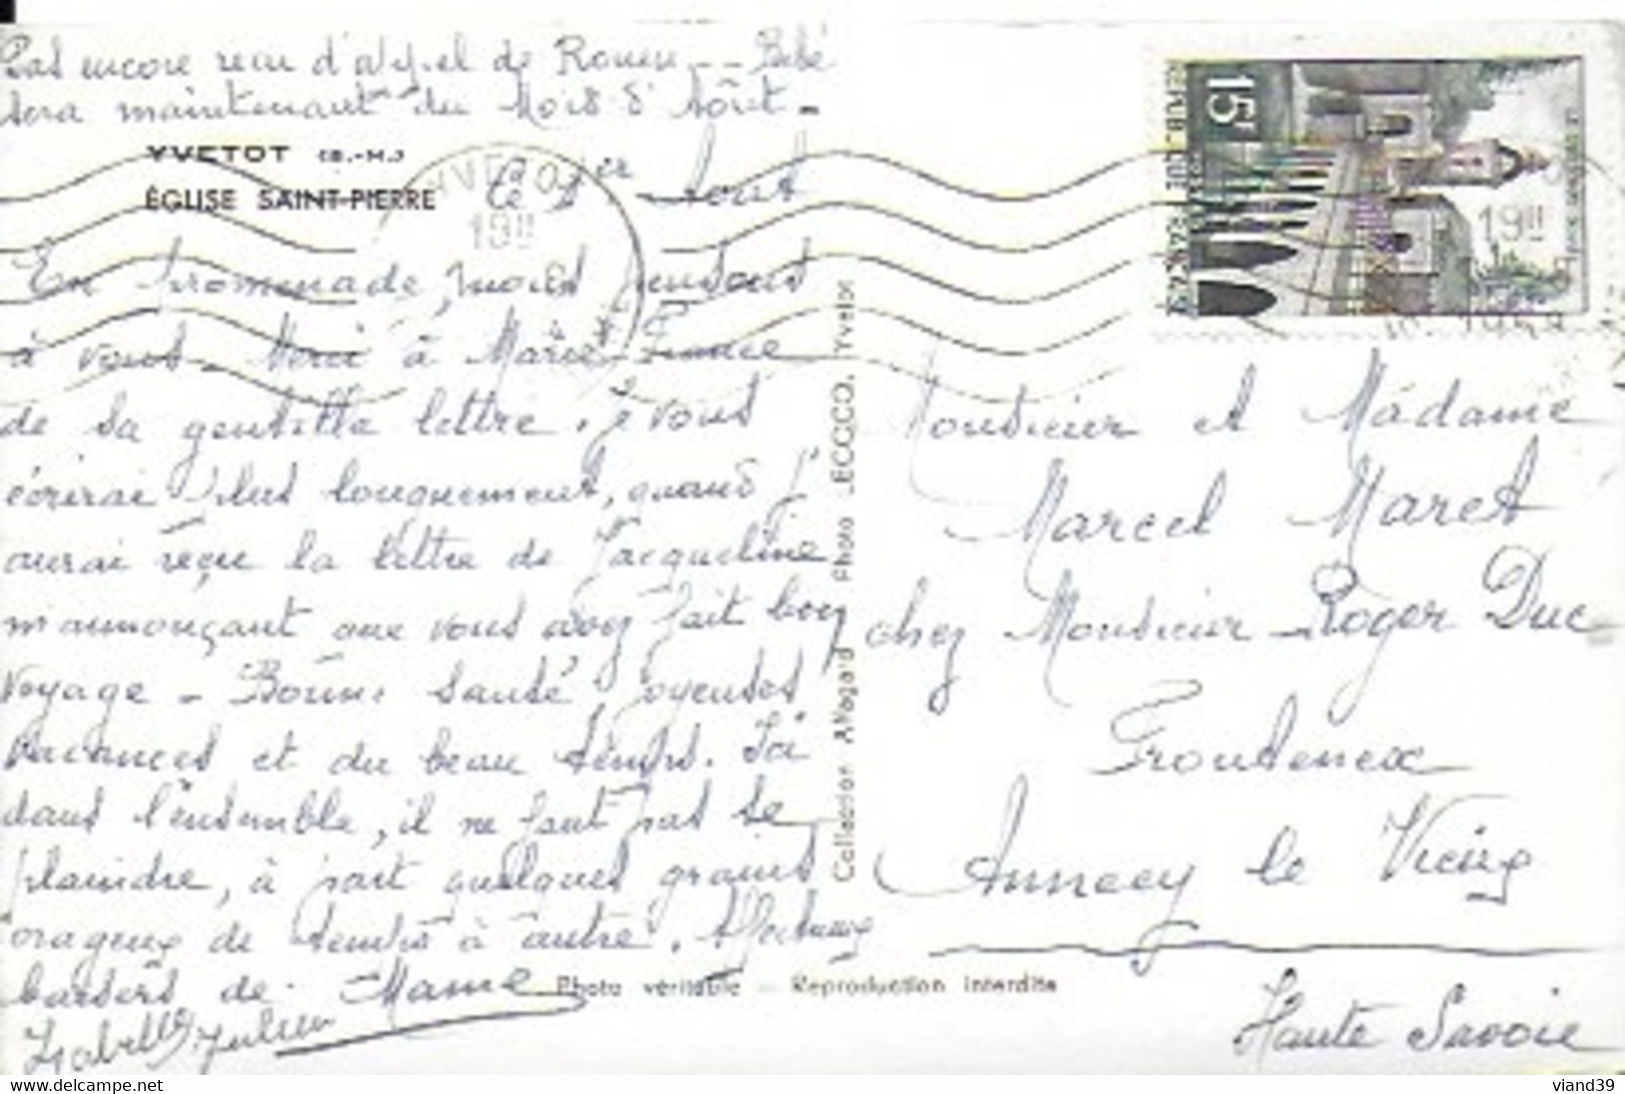 Pas encore reçu d'appel de Rouen -- Bébé
sera maintenant du Mois d'Août -
YVETOT (S.-M.)
ÉGLISE SAINT-PIERRE
Ce 1er Aout
En promenade, nous pensons
à vous. Merci à Marie-France
de sa gentille lettre. Je vous
écrirai plus longuement, quand j'
aurai reçu la lettre de Jacqueline
m'annonçant que vous avez fait bon
voyage - Bonne santé joyeuses
vacances et du beau temps. Ici
dans l'ensemble, il ne faut pas se
plaindre, à part quelques grains
orageux de temps à autre. Affectueux
baisers de Mame
Isabelle, Julien
Collection Photo LECCO, Yvetot
Photo véritable - Reproduction interdite
15F
REPUBLIQUE FRANÇAISE
19H
Monsieur et Madame
Marcel Maret
chez Monsieur Roger Duc
Frontenex
Annecy le Vieux
Haute Savoie
viand39